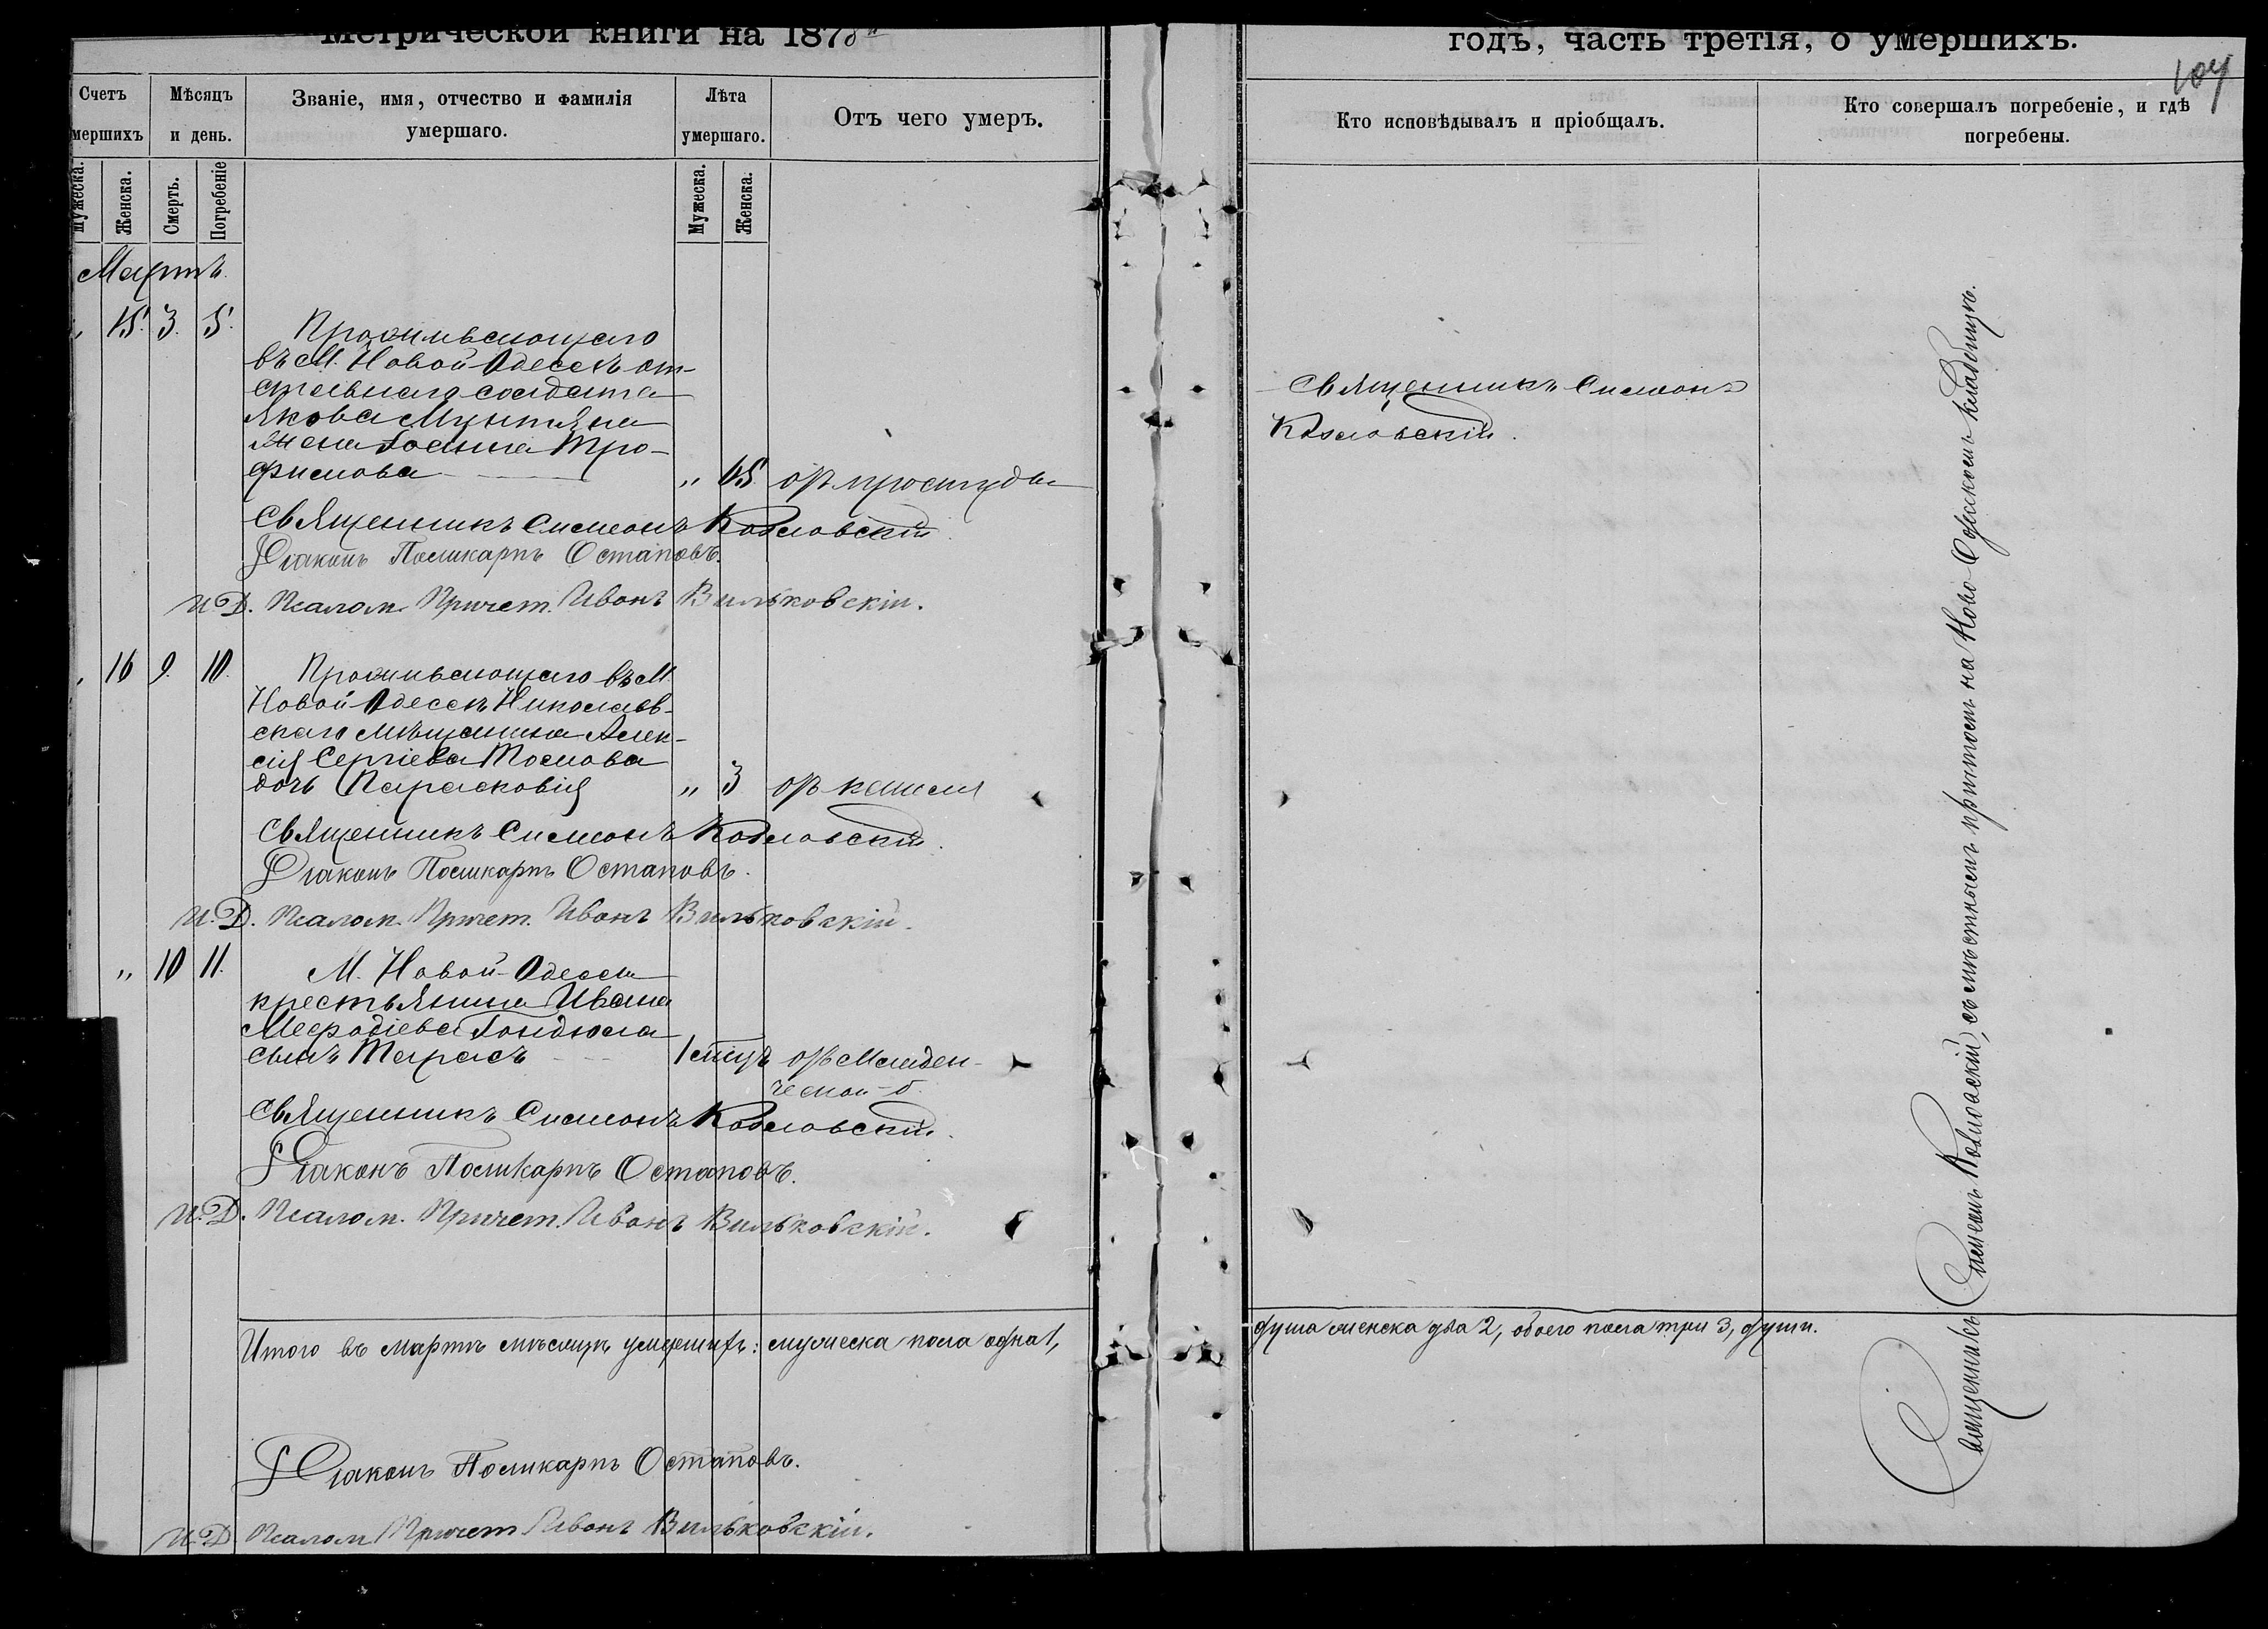 Метрической книги на 1878й
годъ, часть третія, о умершихъ.
107
Счетъ
мершихъ
Мѣсяцъ
и день.
Званіе, имя, отчество и фамилія
умершаго.
Лѣта
умершаго.
Отъ чего умеръ.
Кто исповѣдывалъ и пріобщалъ.
Кто совершалъ погребеніе, и гдѣ
погребены.
Мужеска.
Женска.
Смерть.
Погребеніе
Мужеска.
Женска.
Мартъ.
„ 15. 3. 5. Проживающаго
въ М. Новой-Одессѣ от-
ставнаго солдата
Якова Мунтяна
жена Іоанна Тро-
фимова „ 65 отъ простуды
Священникъ Симеонъ
Козловскій.
Священникъ Симеонъ Козловскій
Діаконъ Поликарпъ Остаповъ.
И. Д. Псалом. Причет. Иванъ Вильковскій.
„ 16 9. 10. Проживающаго въ М.
Новой-Одессѣ Николаев-
скаго мѣщанина Алек-
сія Сергіева Томова
дочь Парасковія „ 3 отъ кашля
Священникъ Симеонъ Козловскій.
Діаконъ Поликарпъ Остаповъ.
И. Д. Псалом. Причет. Иванъ Вильковскій.
„ 10 11. М. Новой-Одессы
крестьянина Ивана
Меѳодіева Гондюла
сынъ Тарасъ 1 отъ Младен-
ческой б.
Священникъ Симеонъ Козловскій.
Діаконъ Поликарпъ Остаповъ.
И. Д. Псалом. Причет. Иванъ Вильковскій.
Итого въ мартѣ мѣсяцѣ умершихъ: мужеска пола одна 1,
душа женска два 2, обоего пола три 3, души.
Діаконъ Поликарпъ Остаповъ.
И. Д. Псалом Причет Иванъ Вильковскій.
Священникъ Симеонъ Козловскій, съ мѣстнымъ причтомъ на Ново-Одесскомъ кладбищѣ.